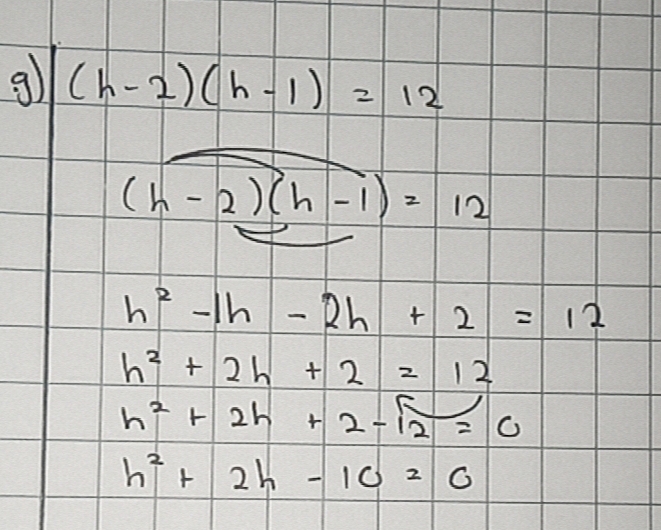 g) (h-2)(h-1) = 12
(h-2)(h-1) = 12
h² -1h - 2h + 2 = 12
h² + 2h + 2 = 12
h² + 2h + 2-12 = 0
h² + 2h - 10 = 0